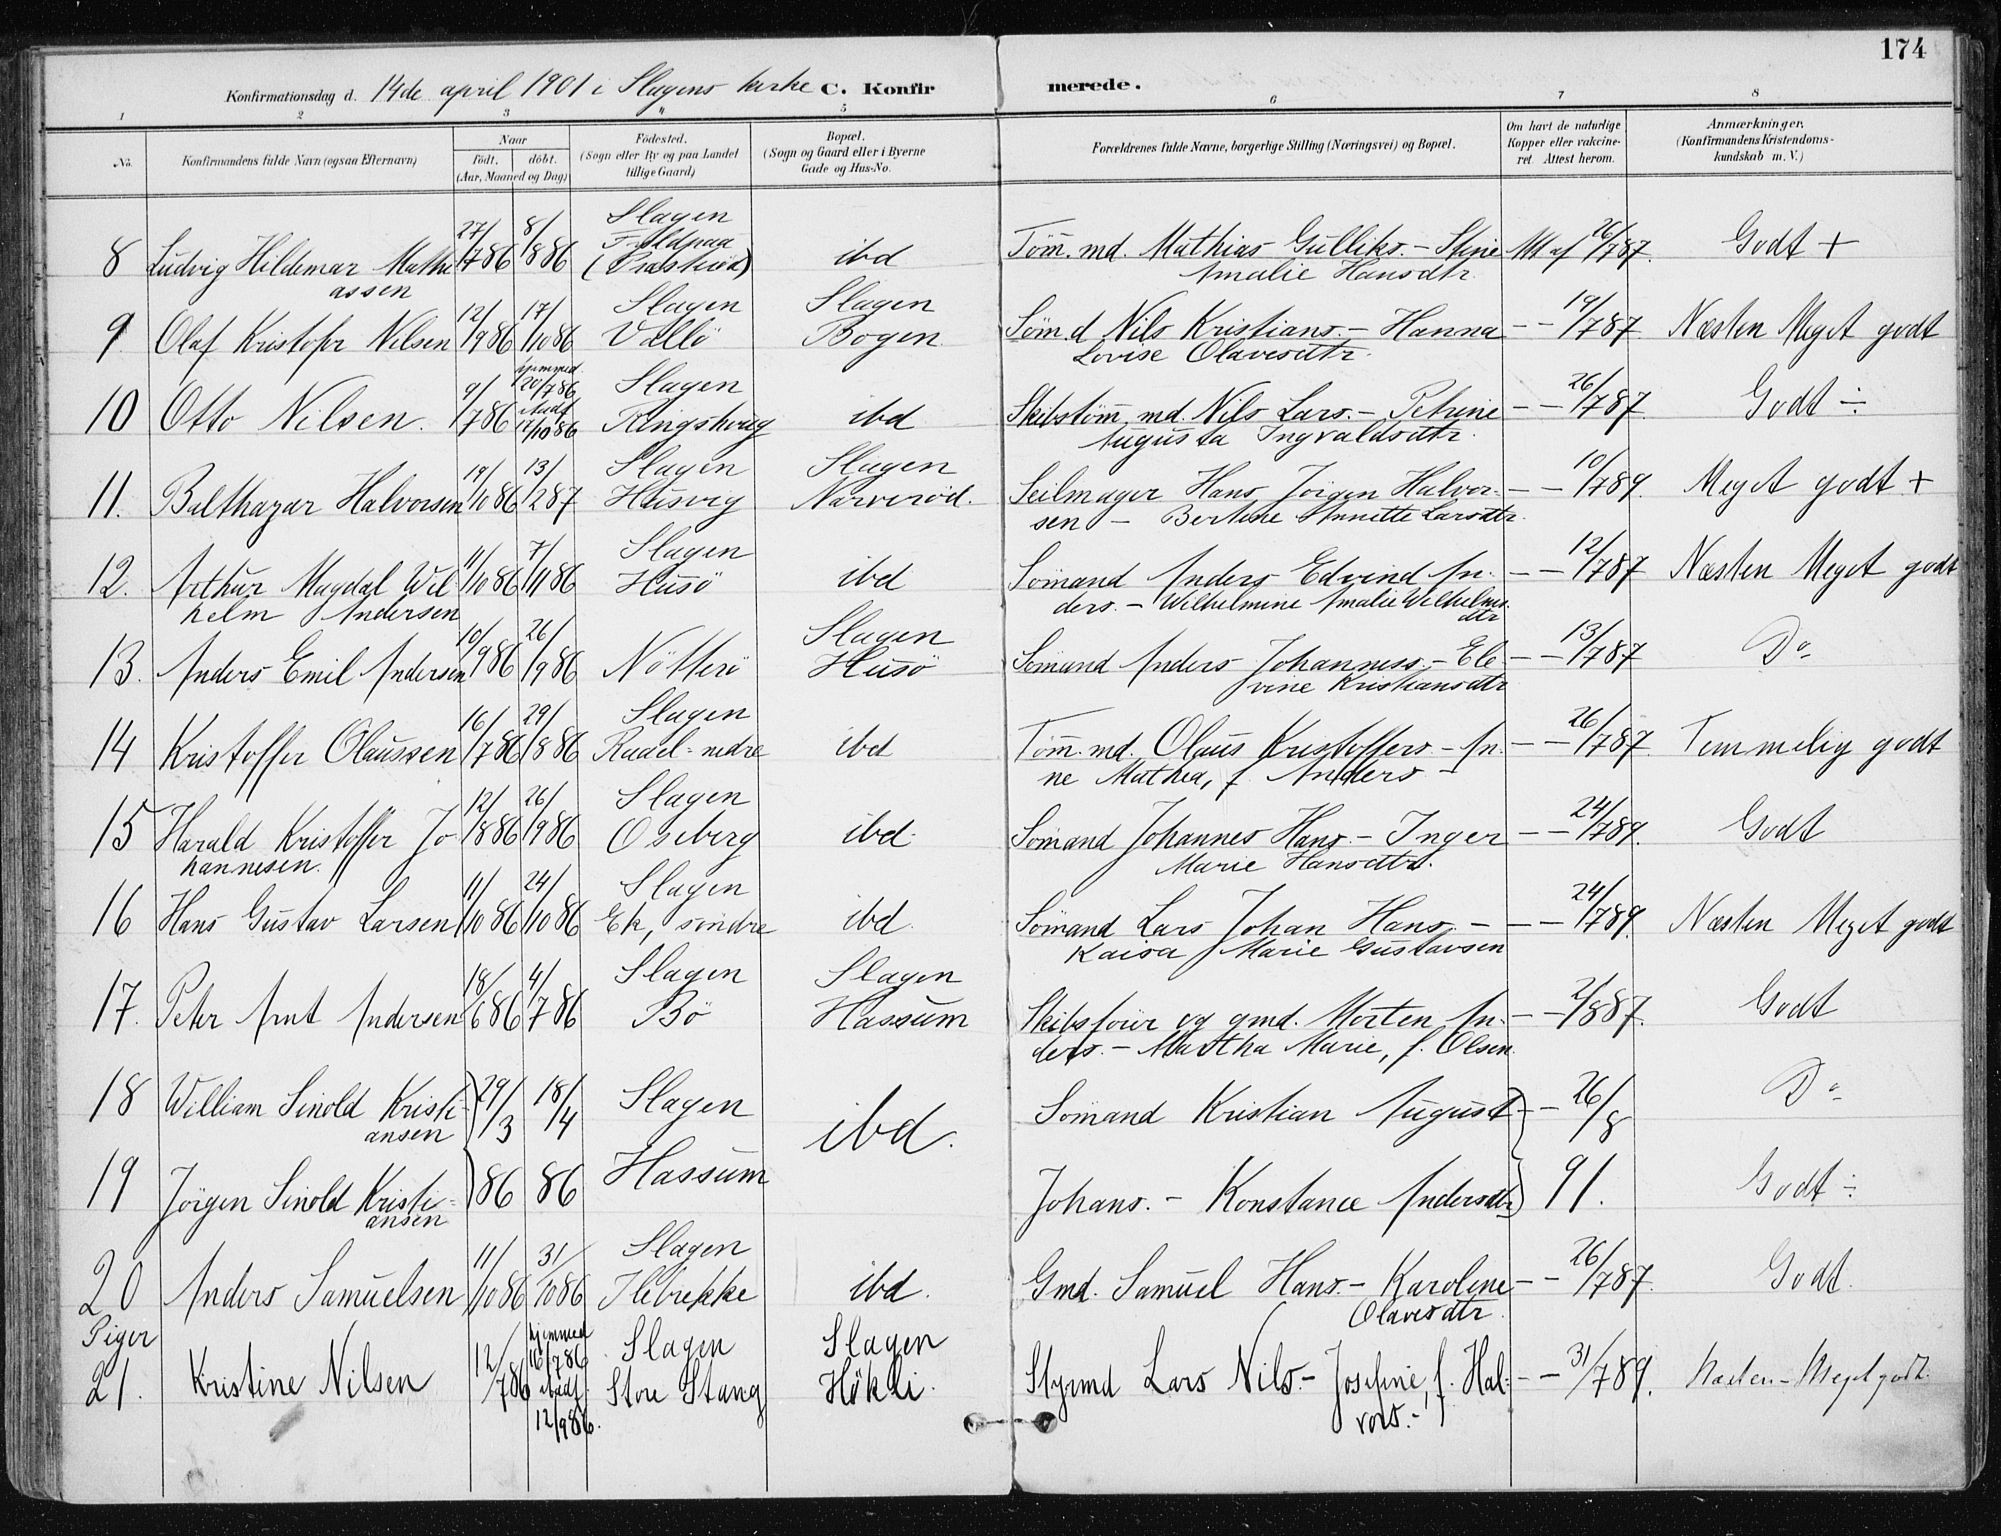 174
Konfirmationsdag d. 14de april 1901 i Slagens kirke C. Konfirmerede.
1 2 3 4 5 6 7 8
No. Konfirmandens fulde Navn (ogsaa Efternavn) Naar Födt. döbt. (Aar, Maaned og Dag) Födested. (Sogn eller By og paa Landet tillige Gaard) Bopæl. (Sogn og Gaard eller i Byerne Gade og Hus-No. Forældrenes fulde Navne, borgerlige Stilling (Næringsvei) og Bopæl. Om havt de naturlige Kopper eller vaccineret. Attest herom. Anmærkninger. (Konfirmandens Kristendomskundskab m. V.)
8 Ludvig Hildemar Mathiassen 27/7 86 8/8 86 Slagen (Præsterød) ibd Töm.md. Mathias Gulliks. - Stine Amalie Hansdtr. Att af 26/7 87. Godt +
9 Olaf Kristofer Nilsen 12/9 86 17/10 86 Slagen Vallö Slagen Bogen Söm.d Nils Kristians. - Hanna Lovise Olavesdtr. - - 19/7 87 Næsten Meget godt
10 Otto Nilsen. 9/7 86 hjemmed. 20/7 86 stadf 17/10 86 Slagen Ringshoug ibd Skibstöm.md. Nils Lars. - Petrine Augusta Ingvaldsdtr. - - 26/7 87 Godt ÷
11. Balthazar Halvorsen 19/10 86 13/2 87 Slagen Husvig Slagen Narveröd. Seilmager Hans Jörgen Halvorsen - Bertine Annette Larsdtr. - - 10/7 89. Meget godt +
12. Arthur Magdal Wilhelm Andersen 11/10 86 7/11 86 Slagen Husö ibd Sömand Anders Edvind Anders. - Wilhelmine Amalie Wilhelmsdtr - - 12/7 87 Næsten Meget godt
13. Anders Emil Andersen 10/9 86 26/9 86 Nötterö Slagen Husö Sömand Anders Johanness. - Elevine Kristiansdtr - - 13/7 87 Do
14 Kristoffer Olaussen 16/7 86 29/8 86 Slagen Raael - nedre ibd Töm.md. Olaus Kristoffers. - Anne Mathea, f. Anders - - - 26/7 87 Temmelig godt
15 Harald Kristoffer Johannesen. 12/8 86 26/9 86 Slagen Oseberg ibd. Sömand Johannes Hans. - Inger Marie Hansdtr. - - 24/7 89. Godt
16 Hans Gustav Larsen 11/10 86 24/10 86 Slagen Ek, söndre ibd. Sömand Lars Johan Hans. - Kaisa Marie Gustavsen - - 24/7 89. Næsten Meget godt
17. Peter Arnt Andersen 18/6 86 4/7 86 Slagen Bö Slagen Hassum Skibsförer og gmd. Morten Anders. - Martha Marie, f. Olsen. - - 2/8 87. Godt
18 William Sinold Kristiansen 29/3 18/4 Slagen ibd. Sömand Kristian August - - 26/8 Do
19 Jörgen Sinold Kristiansen 86 86 Hassum Johans. - Konstance Andersdtr 91. Godt ÷
20 Anders Samuelsen 11/10 86 31/10 86 Slagen Ilebrekke ibd. Gmd. Samuel Hans. - Karoline Olavesdtr. - - 26/7 87. Godt.
Piger
21. Kristine Nilsen 12/7 86 hjemmed 16/7 86 stadf. 12/9 86. Slagen Store Stang Slagen Hökli. Styrmd Lars Nils. - Josefine, f. Halvors. - - - 31/7 89. Næsten - Meget godt.